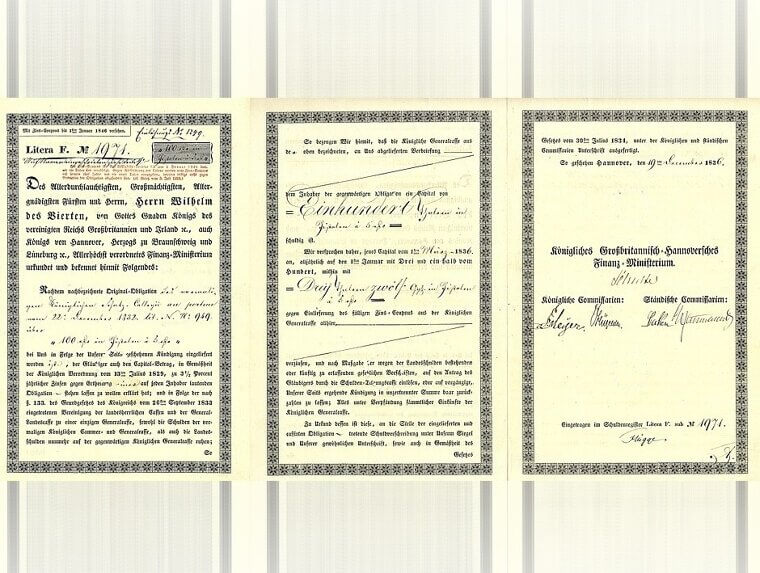 Mit Zins-Coupons bis 1sten Januar 1846 versehen.
Litera F. № 1971.
Des Allerdurchlauchtigsten, Großmächtigsten, Aller-
gnädigsten Fürsten und Herrn, Herrn Wilhelm
des Vierten, von Gottes Gnaden Königs des
vereinigten Reichs Großbritannien und Irland ꝛc., auch
Königs von Hannover, Herzogs zu Braunschweig und
Lüneburg ꝛc., Allerhöchst verordnetes Finanz-Ministerium
urkundet und bekennet hiemit Folgendes:
Nachdem nachbezeichnete Original-Obligation
vom 22sten December 1832. Lit. N. № 949.
über
bei uns in Folge der Unsrer Seits geschehenen Kündigung eingeliefert
worden ist, der Gläubiger auch den Capital-Betrag, in Gemäßheit
der Königlichen Verordnung vom 13ten Juli 1829, zu 3½ Procent
jährlicher Zinsen gegen auf jeden Inhaber lautenden
Obligation stehen lassen zu wollen erklärt hat; und in Folge der nach
§. 133. des Grundgesetzes des Königreichs vom 26sten September 1833
eingetretenen Vereinigung der landesherrlichen Cassen und der General-
Landescasse zu einer einzigen Generalcasse, sowohl die Schulden der vor-
maligen Königlichen Cammer- und Generalcasse, als auch die Landes-
schulden nunmehr auf der gegenwärtigen Königlichen Generalcasse ruhen;
So
So bezeugen Wir hiemit, daß die Königliche Generalcasse aus
de oben bezeichneten, an Uns abgelieferten Verbriefung
dem Inhaber der gegenwärtigen Obligation ein Capital von
= Einhundert Thalern in
Pistolen à 5
schuldig ist.
Wir versprechen daher, jenes Capital vom 1sten März 1836.
an, alljährlich auf den 1sten Januar mit Drei und ein halb vom
Hundert, mithin mit
= Drey Thalern zwölf in Pistolen
à 5
gegen Einlieferung des fälligen Zins-Coupons aus der Königlichen
Generalcasse
verzinsen, und nach Maßgabe der wegen der Landesschulden bestehenden
oder künftig zu erlassenden gesetzlichen Vorschriften, auf den Antrag des
Gläubigers durch die Schulden-Tilgungscasse einlösen, oder auf vorgängige,
Unserer Seits ergehende Kündigung in unzertrennter Summe baar zurück-
zahlen zu lassen. Alles unter Verpfändung sämmtlicher Einkünfte der
Königlichen Generalcasse.
Zu Urkund dessen ist diese, an die Stelle der eingelieferten und
cassirten Obligation tretende Schuldverschreibung unter Unserem Siegel und
Unserer gewöhnlichen Unterschrift, sowie auch in Gemäßheit des
Gesetzes
Gesetzes vom 30sten Julius 1834, unter der Königlichen und ständischen
Commissarien Unterschrift ausgefertigt.
So geschehen Hannover, den 19ten December 1836.
Königliches Großbritannisch-Hannoversches
Finanz-Ministerium.
Königliche Commissarien: Ständische Commissarien:
Eingetragen im Schuldenregister Litera F. sub № 1971.